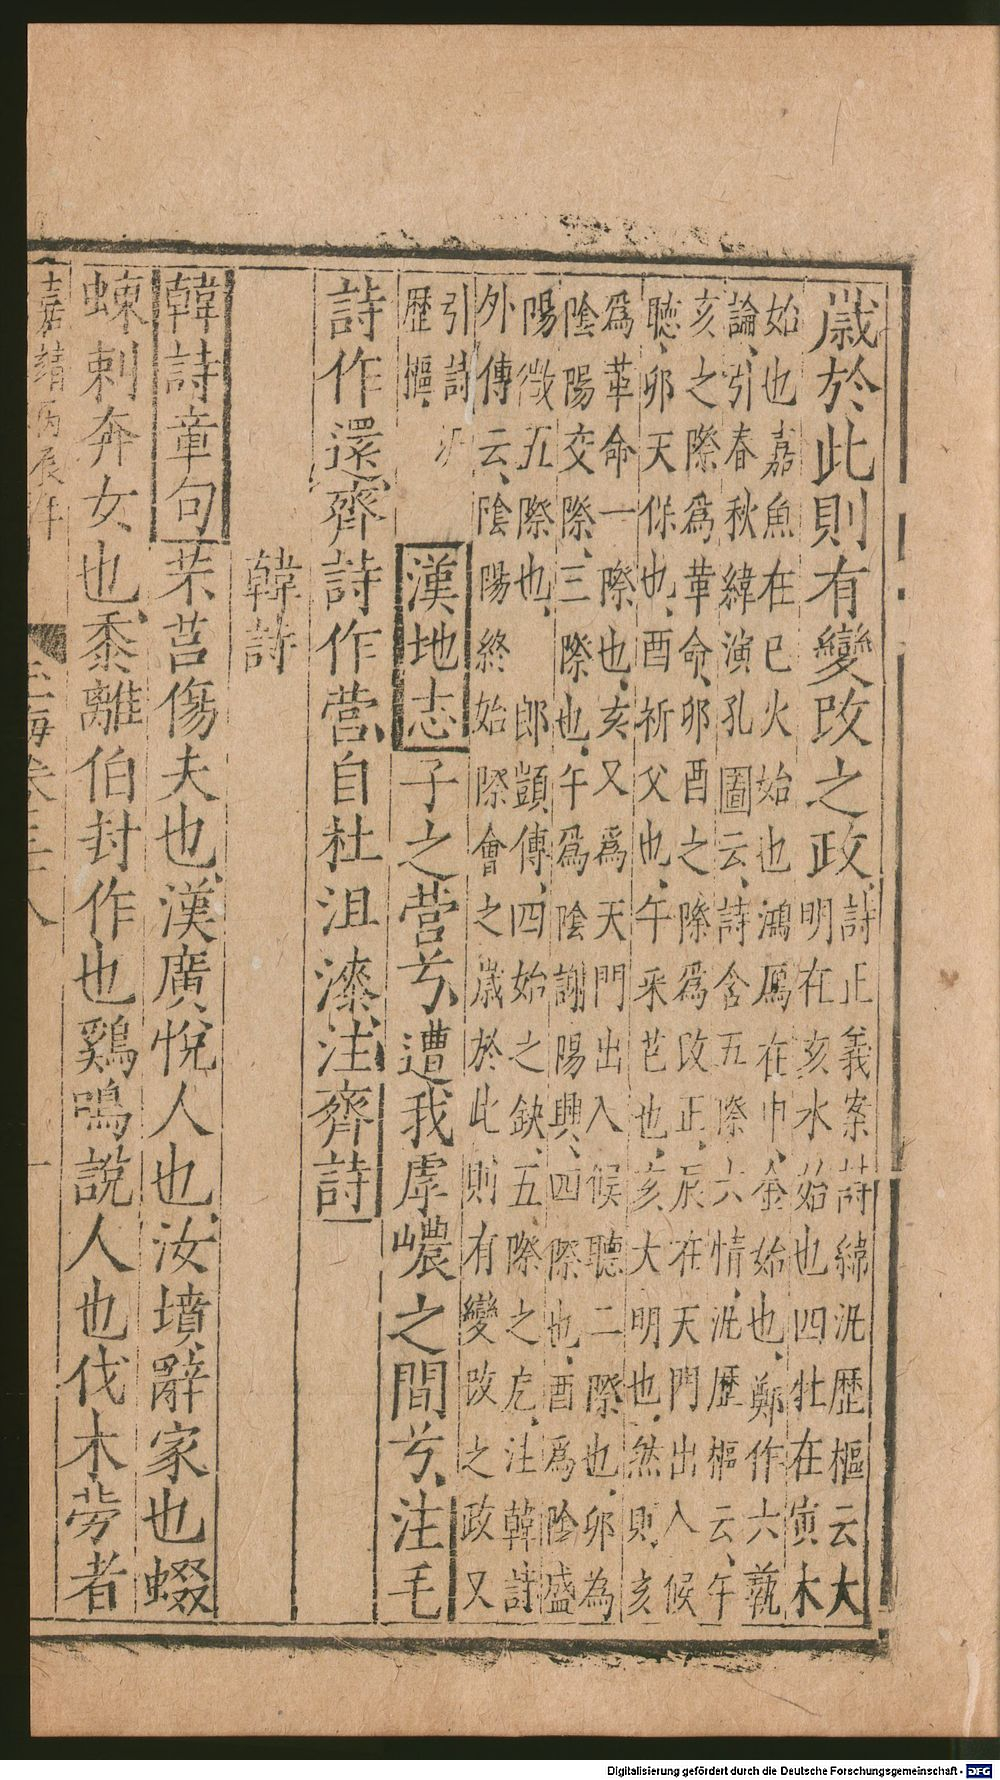 歲於此則有變改之政、詩正義案詩緯汎歷樞云大
明在亥水始也四牡在寅木
始也嘉魚在巳火始也鴻鴈在申、金始也、鄭作六藝
論、引春秋緯演孔圖云、詩含五際六情、汎歷樞云、午
亥之際爲華命、卯酉之際爲改正、辰在天門出入候
聽、卯天保也、酉祈父也、午采芑也、亥大明也、然則亥
爲革命一際也、亥又爲天門出入候聽二際也、卯為
陰陽交際、三際也、午爲陰謝陽興、四際也、酉爲陰盛
陽微五際也、郎顗傳、四始之缺、五際之戹、注韓詩
外傳云、陰陽終始際會之歲於此則有變改之政又
引詩汎
歷樞、
漢地志子之營兮、遭我虖嶩之間兮、注毛
詩作還、齊詩作營、自杜沮漆、注齊詩
韓詩
韓詩章句芣苢傷夫也、漢廣悅人也、汝墳、辭家也蝃
蝀刺奔女也、黍離伯封作也鷄鳴說人也伐木勞者
嘉靖丙辰年
玉海卷三十八
Digitalisierung gefördert durch die Deutsche Forschungsgemeinschaft - DFG